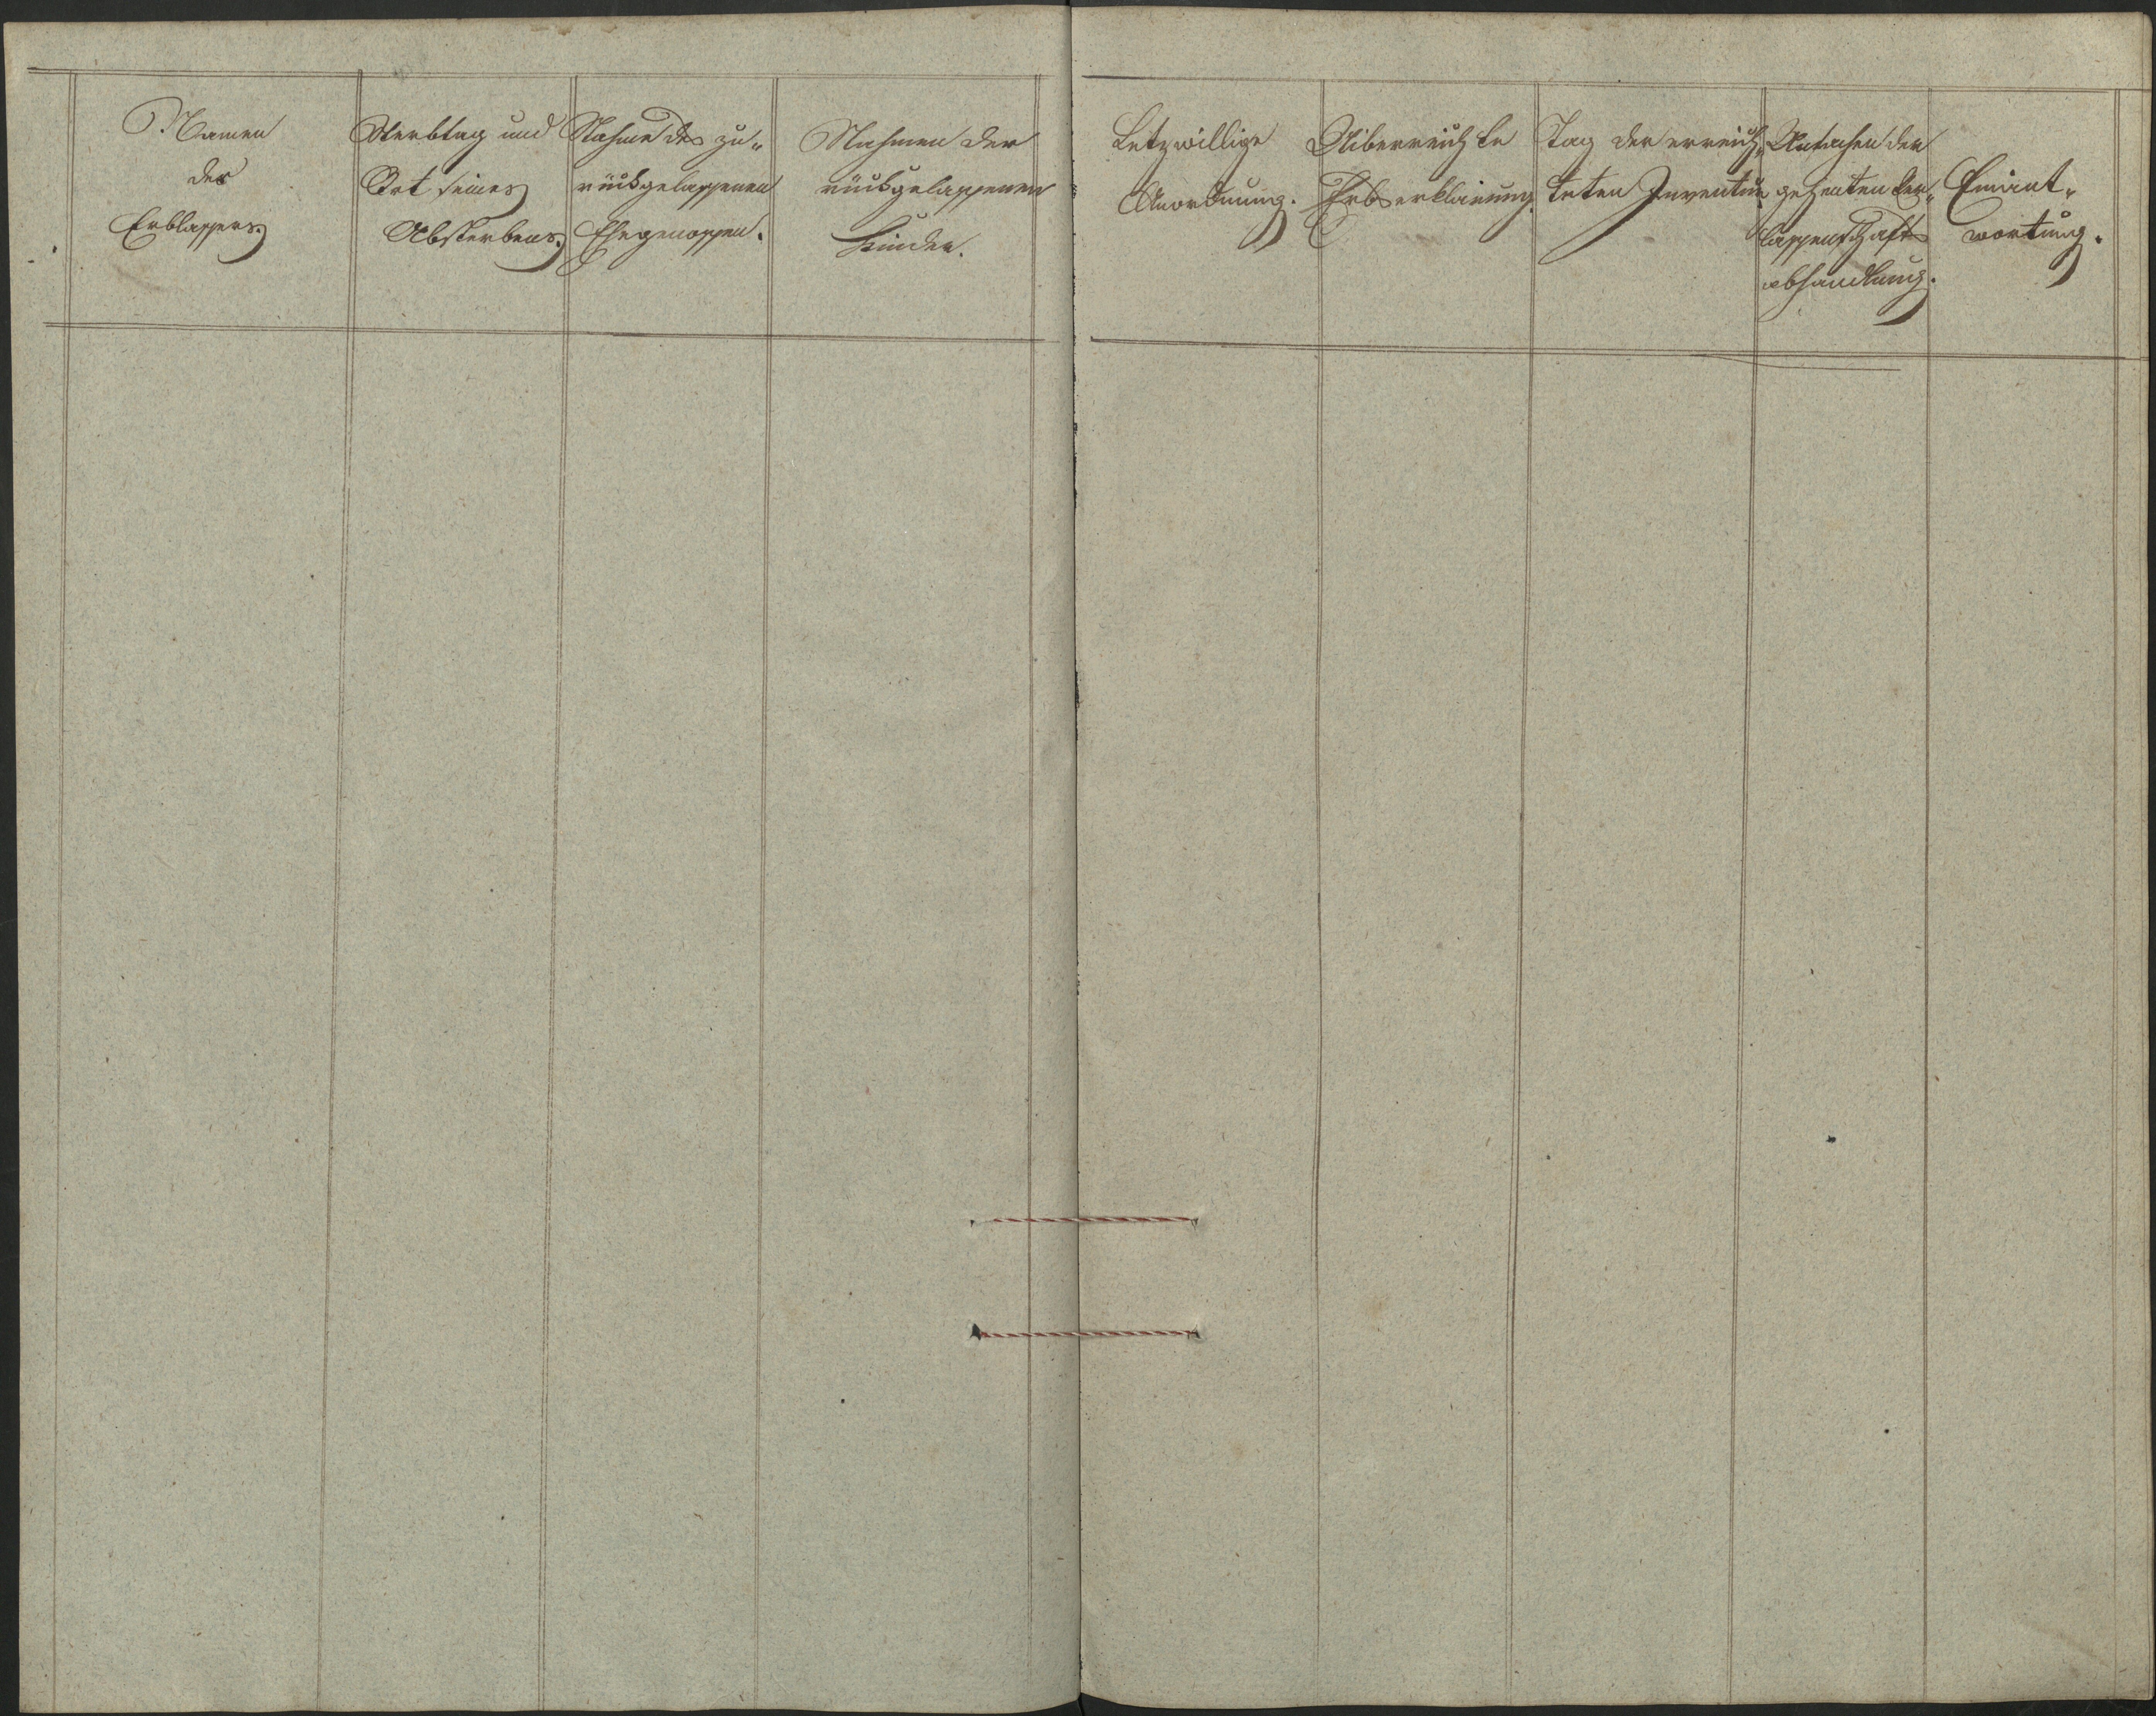 Namen
des
Erblassers.
Sterbtag und
Ort seines
Absterbens.
Nahme des zu„
rückgelassenen
Ehegenossen.
Nahmen der
rückgelassenen
Kinder.
Letzwillige
Anordnung.
Uiberreichte
Erbserklärung.
Tag der errich„
teten Inventur
der
Ver„
lassenschafts
abhandlung.
Einant„
wortung.